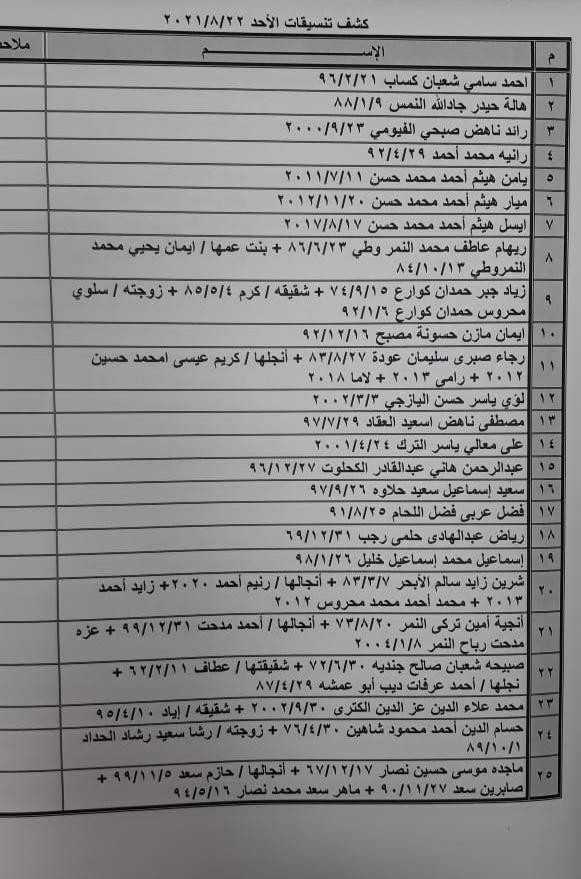 كشف تنسيقات الأحد ٢٠٢١/٨/٢٢
م الإســـــم ملاحظ
١ احمد سامي شعبان كساب ٩٦/٢/٢١
٢ هالة حيدر جادالله النمس ٨٨/١/٩
٣ رائد ناهض صبحي الفيومي ٢٠٠٠/٩/٢٣
٤ رانيه محمد أحمد ٩٢/٤/٢٩
٥ يامن هيثم أحمد محمد حسن ٢٠١١/٧/١١
٦ ميار هيثم أحمد محمد حسن ٢٠١٢/١١/٢٠
٧ ايسل هيثم أحمد محمد حسن ٢٠١٧/٨/١٧
٨ ريهام عاطف محمد النمر وطي ٨٦/٦/٢٣ + بنت عمها / ايمان يحيي محمد
النمروطي ٨٤/١٠/١٣
٩ زياد جبر حمدان كوارع ٧٤/٩/١٥ + شقيقه / كرم ٨٥/٥/٤ + زوجته / سلوي
محروس حمدان كوارع ٩٢/١/٦
١٠ ايمان مازن حسونة مصبح ٩٢/١٢/١٦
١١ رجاء صبرى سليمان عودة ٨٣/٨/٢٧ + أنجلها / كريم عيسى امحمد حسين
٢٠١٢ + رامى ٢٠١٣ + لاما ٢٠١٨
١٢ لؤي ياسر حسن اليازجي ٢٠٠٢/٣/٣
١٣ مصطفى ناهض اسعيد العقاد ٩٧/٧/٢٩
١٤ على معالي ياسر الترك ٢٠٠١/٤/٢٤
١٥ عبدالرحمن هاني عبدالقادر الكحلوت ٩٦/١٢/٢٧
١٦ سعيد إسماعيل سعيد حلاوه ٩٧/٩/٢٦
١٧ فضل عربى فضل اللحام ٩١/٨/٢٥
١٨ رياض عبدالهادى حلمى رجب ٦٩/١٢/٣١
١٩ إسماعيل محمد إسماعيل خليل ٩٨/١/٢٦
٢٠ شرين زايد سالم الأبحر ٨٣/٣/٧ + أنجالها / رنيم أحمد ٢٠٢٠+ زايد أحمد
٢٠١٣ + محمد أحمد محمد محروس ٢٠١٢
٢١ أنجية أمين تركى النمر ٧٣/٨/٢٠ + أنجالها / أحمد مدحت ٩٩/١٢/٣١ + عزه
مدحت رباح النمر ٢٠٠٤/١/٨
٢٢ صبيحه شعبان صالح جنديه ٧٢/٦/٣٠ + شقيقتها / عطاف ٦٢/٢/١١ +
نجلها / أحمد عرفات ديب أبو عمشه ٨٧/٤/٢٩
٢٣ محمد علاء الدين عز الدين الكترى ٢٠٠٢/٩/٣٠ + شقيقه / إياد ٩٥/٤/١٠
٢٤ حسام الدين أحمد محمود شاهين ٧٦/٤/٣٠ + زوجته / رشا سعيد رشاد الحداد
٨٩/١٠/١
٢٥ ماجده موسى حسين نصار ٦٧/١٢/١٧ + أنجالها / حازم سعد ٩٩/١١/٥ +
صابرين سعد ٩٠/١١/٢٧ + ماهر سعد محمد نصار ٩٤/٥/١٦